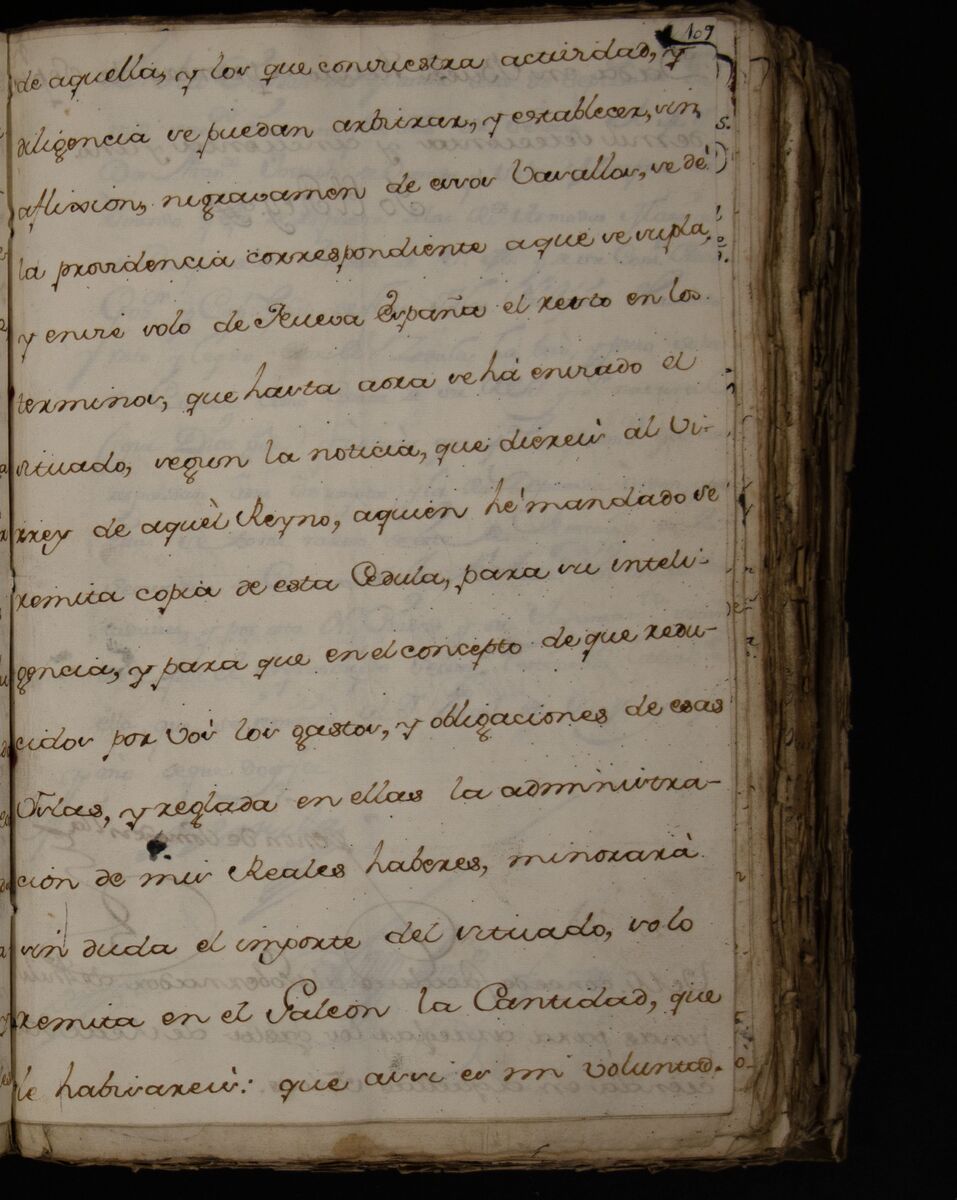 109
de aquella, y los que con vuestra actividad, y
diligencia se puedan arbitrar, y establecer, sin
aflixion, ni gravamen de esos Vasallos, se dè
la providencia correspondiente a que se supla,
y envie solo de Nueva España el resto en los
terminos, que hasta aora se há enviado el
situado, segun la noticia, que diereis al Vi-
rrey de aquèl Reyno, aquien hé mandado se
remita copia de esta Cedula, para su inteli-
gencia, y para que en el concepto de que redu-
cidos por Vos los gastos, y obligaciones de esas
Yslas, y reglada en ellas la administra-
cion de mis Reales haberes, minorarà
sin duda el importe del situado, solo
remita en el Galeon la Cantidad, que
le habisareis: que assi es mi voluntad.